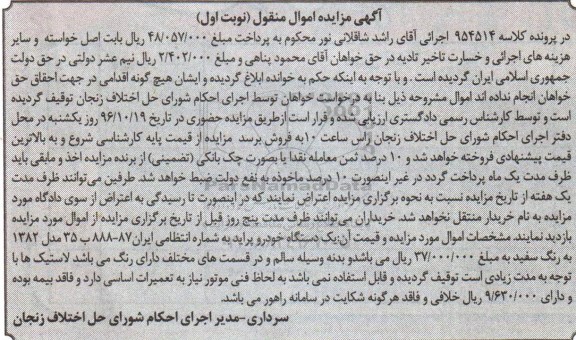 آگهی مزایده اموال منقول (نوبت اول)
در پرونده کلاسه ۹۵۴۵۱۴ اجرائی آقای راشد شاقلانی نور محکوم به پرداخت مبلغ ۴۸/۰۵۷/۰۰۰ ریال بابت اصل خواسته و سایر
هزینه های اجرائی و خسارت تاخیر تادیه در حق خواهان آقای محمود پناهی و مبلغ ۲/۴۰۲/۰۰۰ ریال نیم عشر دولتی در حق دولت
جمهوری اسلامی ایران گردیده است . و با توجه به اینکه حکم به خوانده ابلاغ گردیده و ایشان هیچ گونه اقدامی در جهت احقاق حق
خواهان انجام نداده اند اموال مشروحه ذیل بنا به درخواست خواهان توسط اجرای احکام شورای حل اختلاف زنجان توقیف گردیده
است و توسط کارشناس رسمی دادگستری ارزیابی شده و قرار است از طریق مزایده حضوری در تاریخ ۹۶/۱۰/۱۹ روز یکشنبه در محل
دفتر اجرای احکام شورای حل اختلاف زنجان راس ساعت ۱۰ به فروش برسد مزایده از قیمت پایه کارشناسی شروع و به بالاترین
قیمت پیشنهادی فروخته خواهد شد و ۱۰ درصد ثمن معامله نقدا یا بصورت چک بانکی (تضمینی) از برنده مزایده اخذ و مابقی باید
ظرف مدت یک ماه پرداخت گردد در غیر اینصورت ۱۰ درصد ماخوذه به نفع دولت ضبط خواهد شد. طرفین می‌توانند ظرف مدت
یک هفته از تاریخ مزایده نسبت به نحوه برگزاری مزایده اعتراض نمایند که در اینصورت تا رسیدگی به اعتراض از سوی دادگاه مورد
مزایده به نام خریدار منتقل نخواهد شد. خریداران می‌توانند ظرف مدت پنج روز قبل از تاریخ برگزاری مزایده از اموال مورد مزایده
بازدید نمایند. مشخصات اموال مورد مزایده و قیمت آن:یک دستگاه خودرو پراید به شماره انتظامی ایران۸۷-۸۸۸ ب ۳۵ مدل ۱۳۸۲
به رنگ سفید به مبلغ ۳۷/۰۰۰/۰۰۰ ریال می باشدو بدنه وسیله سالم و در قسمت های مختلف دارای رنگ می باشد لاستیک ها با
توجه به مدت زیادی است توقیف گردیده و قابل استفاده نمی باشد به لحاظ فنی موتور نیاز به تعمیرات اساسی دارد و فاقد بیمه بوده
و دارای ۹/۶۳۰/۰۰۰ ریال خلافی و فاقد هر گونه شکایت در سامانه راهور می باشد.
سرداری-مدیر اجرای احکام شورای حل اختلاف زنجان
ParsNamadData